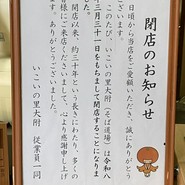 閉店のお知らせ
日頃から当店をご愛顧いただき、誠にありがとう
ございます。
このたび、いこいの里大附（そば道場）は令和八
年三月三十一日をもちまして閉店することになりま
した。
開店以来、約三十年という長きにわたり、多くの
皆様にご来店くださいまして、心より感謝申し上げ
ます。ありがとうございました。
いこいの里大附 従業員一同